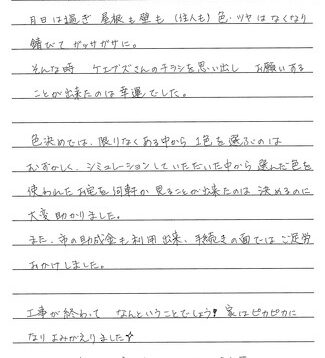 月日は過ぎ 屋根も壁も (住人も) 色・ツヤはなくなり
錆びて ガッサガサに。
そんな時 ケエヅズさんのチラシを思い出し お願いする
ことが出来たのは幸運でした。
色決めでは、限りなくある中から 1色を選ぶのは
むずかしく、シミュレーションしていただいた中から 選んだ色を
使われたお宅を何軒か 見ることが出来たのは 決めるのに
大変助かりました。
また、市の助成金も利用出来、手続きの面では ご足労
おかけしました。
工事が終わって なんということでしょう! 家はピカピカに
なり よみがえりました☆